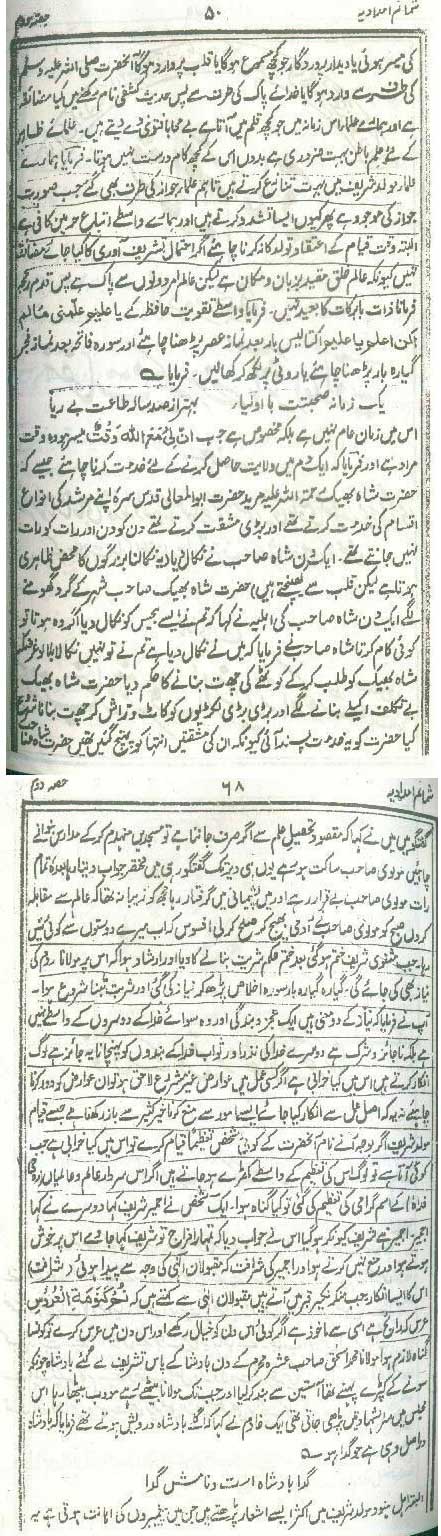 شمائم امدادیہ ۵۰ حصہ دوم
کی میسر ہوئی یا دیدار پروردگار جو کچھ مسموع ہوگا یا قلب پر وارد ہوگا آنحضرت صلی اللہ علیہ وسلم
کی طرف سے وارد ہوگا یا خدائے پاک کی طرف سے پس حدیث کشفی نام رکھنے میں کیا مضائقہ
ہے اور ہمارے علماء اس زمانہ میں جو کچھ قلم میں آتا ہے بے محابا فتویٰ دے دیتے ہیں۔ علمائے ظاہر
کے لئے علم باطن بہت ضروری ہے بدوں اس کے کچھ کام درست نہیں ہوتا۔ فرمایا ہمارے
علماء مولد شریف میں بہت تنازع کرتے ہیں تاہم علماء جواز کی طرف بھی گئے جب صورت
جواز کی موجود ہے پھر کیوں ایسا تشدد کرتے ہیں اور ہمارے واسطے اتباع حرمین کافی ہے
البتہ وقت قیام کے اعتقاد تولد کا نہ کرنا چاہئے اگر احتمال تشریف آوری کا کیا جائے مضائقہ
نہیں کیونکہ عالم خلق مقید بزمان و مکان ہے لیکن عالم امر دونوں سے پاک ہے پس قدم رنجہ
فرمانا ذات بابرکات کا بعید نہیں۔ فرمایا واسطے تقویت حافظہ کے یا علیم علمنی مالم
اکن اعلم یا علیم اکتالیس بار بعد نماز عصر پڑھنا چاہئے اور سورہ فاتحہ بعد نماز فجر
گیارہ بار پڑھنا چاہئے یا روٹی پر لکھ کر کھالیں۔ فرمایا ؎
یک زمانہ صحبت با اولیاء بہتر از صد سالہ طاعت بے ریا
اس میں زمان عام نہیں ہے بلکہ مخصوص ہے جب ان لی مع اللہ وقت میسر ہو وہ وقت
مراد ہے اور فرمایا کہ ایک دم میں ولایت حاصل کرنے کے لئے خدمت کرنا چاہئے جیسے کہ
حضرت شاہ بھیک رحمۃ اللہ علیہ مرید حضرت ابو المعالی قدس سرہ اپنے مرشد کی انواع
اقسام کی خدمت کرتے تھے اور بڑی مشقت کرتے تھے دن کو دن اور رات کو رات
نہیں جانتے تھے۔ ایک دن شاہ صاحب نے نکال دیا (یہ نکالنا بزرگوں کا محض ظاہری
ہوتا ہے لیکن قلب سے کھینچتے ہیں) حضرت شاہ بھیک صاحب شہر کے گرد گھومنے
لگے ایک دن شاہ صاحب کی اہلیہ نے کہا کہ تم نے ایسے کو نکال دیا اگر وہ ہوتا تو
کوئی کام کرتا شاہ صاحب نے فرمایا کہ میں نے نکال دیا ہے تم نے تو نہیں نکالا
شاہ بھیک کو طلب کر کے کوٹھے کی چھت بنانے کا حکم دیا حضرت شاہ بھیک
بے تکلف اکیلے بنانے لگے اور بڑی بڑی لکڑیوں کو کاٹ و تراش کر چھت بنانا شروع
کیا حضرت کو یہ خدمت پسند آئی کیونکہ ان کی مشقتیں انتہا کو پہنچ گئیں تھیں حضرت شاہ صاحب
شمائم امدادیہ ۶۸ حصہ دوم
گفتگو میں میں نے کہا کہ مقصود تحصیل علم سے اگر صرف جاننا ہے تو مسجدیں منہدم کر کے مدارس بنوانے
چاہئیں مولوی صاحب ساکت ہو رہے یوں ہی دیر تک گفتگو رہی میں مختصر جواب دیتا رہا بعدہ تمام
رات مولوی صاحب بے قرار رہے اور میں پشیمانی میں گرفتار رہا مجھ کو زیبا نہ تھا کہ عالم سے مقابلہ
کروں صبح کو مولوی صاحب نے آدمی بھیج کر صلح کرلی افسوس کہ اب میرے دوستوں سے کوئی نہیں
رہا۔ جب مثنوی شریف ختم ہوگئی بعد ختم حکم شربت بنانے کا دیا اور ارشاد ہوا کہ اس پر مولانا روم کی
نیاز بھی کی جائے گی۔ گیارہ گیارہ بار سورہ اخلاص پڑھ کر نیاز کی گئی اور شربت بٹنا شروع ہوا۔
آپ نے فرمایا کہ نیاز کے دو معنی ہیں ایک عجز و بندگی اور وہ سوائے خدا کے دوسرے کے واسطے نہیں
ہے بلکہ ناجائز و شرک ہے دوسرے خدا کی نذر اور ثواب خدا کے بندوں کو پہنچانا یہ جائز ہے لوگ
انکار کرتے ہیں اس میں کیا خرابی ہے اگر کسی عمل میں عوارض غیر مشروع لاحق ہوں تو ان عوارض کو دور کرنا
چاہئے نہ یہ کہ اصل عمل سے انکار کیا جائے ایسے امور سے منع کرنا خیر کثیر سے باز رکھنا ہے جیسے قیام
مولد شریف اگر بوجہ آنے نام آنحضرت کے کوئی شخص تعظیما قیام کرے تو اس میں کیا خرابی ہے جب
کوئی آتا ہے تو لوگ اس کی تعظیم کے واسطے کھڑے ہو جاتے ہیں اگر اس سردار عالم و عالمیاں (روحی
فداہ) کے اسم گرامی کی تعظیم کی گئی تو کیا گناہ ہوا۔ ایک شخص نے اجمیر شریف کہا دوسرے نے کہا
اجمیر۔ اجمیر ہے شریف کیونکر ہو گیا اس نے جواب دیا کہ تمہارا مزاج تو شریف کہا جائے اس پر خوش
ہوتے ہو اور منع نہیں کرتے ہو اور اجمیر کی شرافت کہ مقبولان الٰہی کی وجہ سے پیدا ہوئی (وشرافت)
اس کا ایسا انکار جب منکر نکیر قبر میں آتے ہیں مقبولان الٰہی سے کہتے ہیں کہ نم کنومۃ العروس
عرس کہ رائج ہے اسی سے ماخوذ ہے اگر کوئی اس دن کو خیال رکھے اور اس دن میں عرس کرے تو کونسا
گناہ لازم ہوا مولانا محمد اسحق صاحب عشرہ محرم کے دن بادشاہ کے پاس تشریف لے گئے بادشاہ چونکہ
سونے کے کڑے پہنے تھا آستین سے بند کر لیا اور جب تک مولانا بیٹھے رہے مؤدب بیٹھا رہا اس
مجلس میں سر الشہادتین پڑھی جاتی تھی ایک خادم نے کہا کہ اگلے بادشاہ درویش ہوتے تھے فرمایا کہ بادشاہ
دراصل وہی ہے جو گدا ہو ؎
گدا بادشاہ است و نامش گدا
البتہ اہل ہنود مولد شریف میں اکثر ایسے اشعار پڑھتے ہیں جن میں پیغمبروں کی اہانت ہوتی ہے یہ